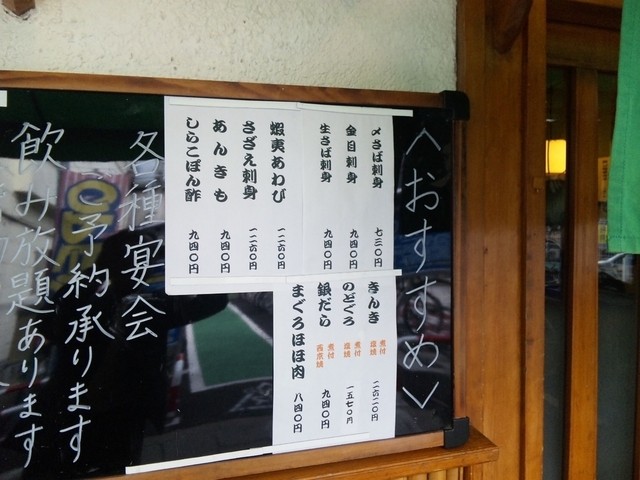 ＜おすすめ＞
〆さば刺身 七三〇円
金目刺身 九四〇円
生さば刺身 九四〇円
蝦夷あわび 一二六〇円
さざえ刺身 一二六〇円
あんきも 九四〇円
しらこぽん酢 九四〇円
きんき 煮付 塩焼 二六二〇円
のどぐろ 煮付 塩焼 一五七〇円
銀だら 煮付 西京焼 九四〇円
まぐろほほ肉 八四〇円
各種宴会
ご予約承ります
飲み放題あります